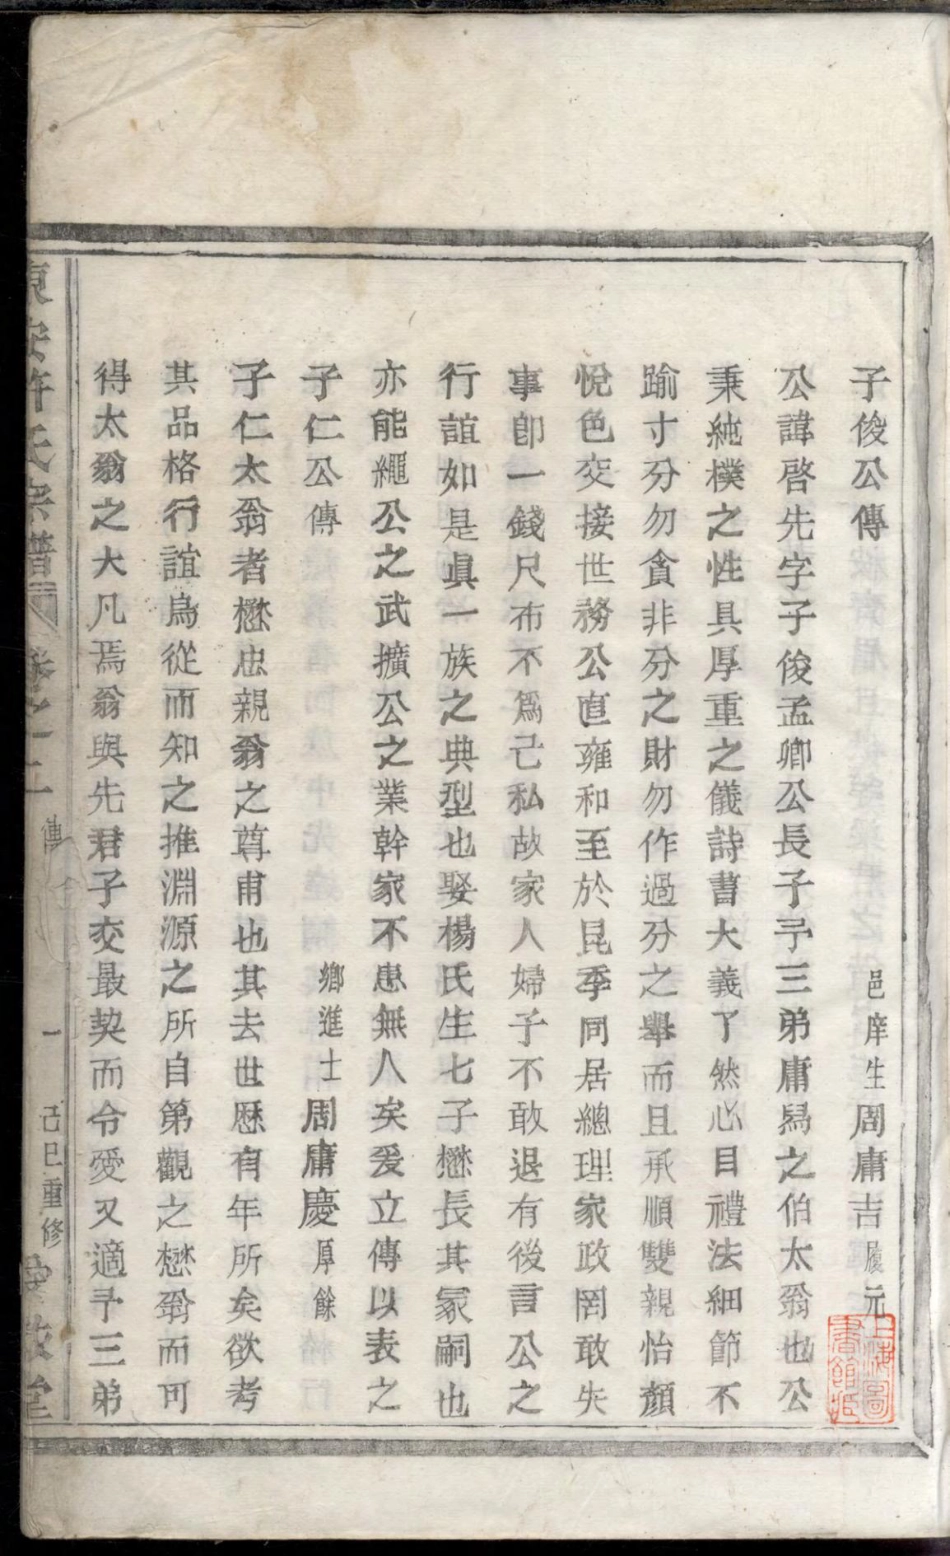 子俊公傳　邑庠生周庸吉履元
公諱啓先字子俊孟卿公長子予三弟庸舄之伯太翁也公
秉純樸之性具厚重之儀詩書大義了然心目禮法細節不
踰寸分勿貪非分之財勿作過分之舉而且承順雙親怡顏
悅色交接世務公直雍和至於昆季同居總理家政罔敢失
事卽一錢尺布不爲己私故家人婦子不敢退有後言公之
行誼如是眞一族之典型也娶楊氏生七子懋長其冢嗣也
亦能繩公之武擴公之業幹家不患無人矣爰立傳以表之
子仁公傳　鄉進士周庸慶厚餘
子仁太翁者懋忠親翁之尊甫也其去世歷有年所矣欲考
其品格行誼烏從而知之推淵源之所自第觀之懋翁而可
得太翁之大凡焉翁與先君子交最契而令愛又適予三弟
東安許氏宗譜　卷之二　傳　一　己巳重修　敦堂
上海圖書館